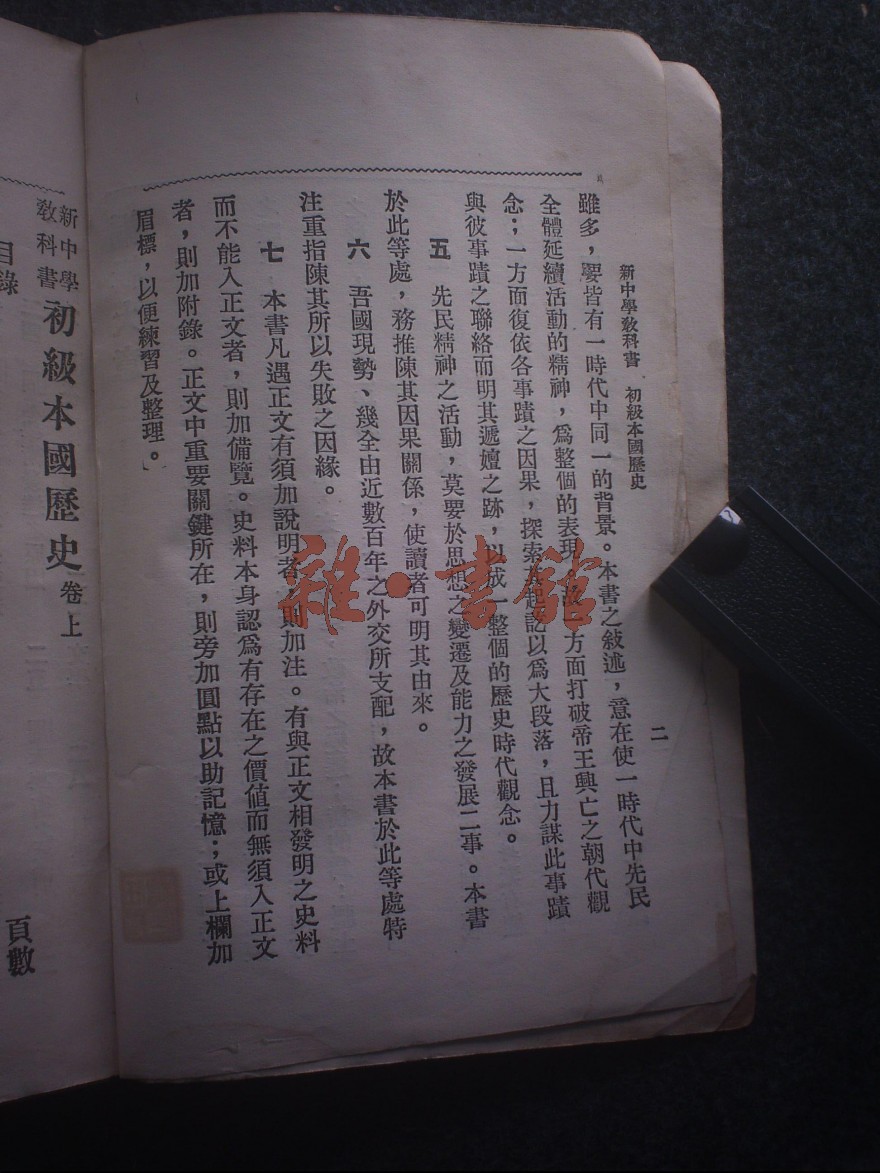 新中學教科書　初級本國歷史
二
雖多，要皆有一時代中同一的背景。本書之敍述，意在使一時代中先民
全體延續活動的精神，爲整個的表現。故一方面打破帝王興亡之朝代觀
念；一方面復依各事蹟之因果，探索其起訖以爲大段落，且力謀此事蹟
與彼事蹟之聯絡而明其遞嬗之跡，以成一整個的歷史時代觀念。
五　先民精神之活動，莫要於思想之變遷及能力之發展二事。本書
於此等處，務推陳其因果關係，使讀者可明其由來。
六　吾國現勢、幾全由近數百年之外交所支配，故本書於此等處特
注重指陳其所以失敗之因緣。
七　本書凡遇正文有須加說明者，則加注。有與正文相發明之史料
而不能入正文者，則加備覽。史料本身認爲有存在之價値而無須入正文
者，則加附錄。正文中重要關鍵所在，則旁加圓點以助記憶；或上欄加
眉標，以便練習及整理。
雜·書館
新中學
教科書
初級本國歷史 卷上
目錄
頁數